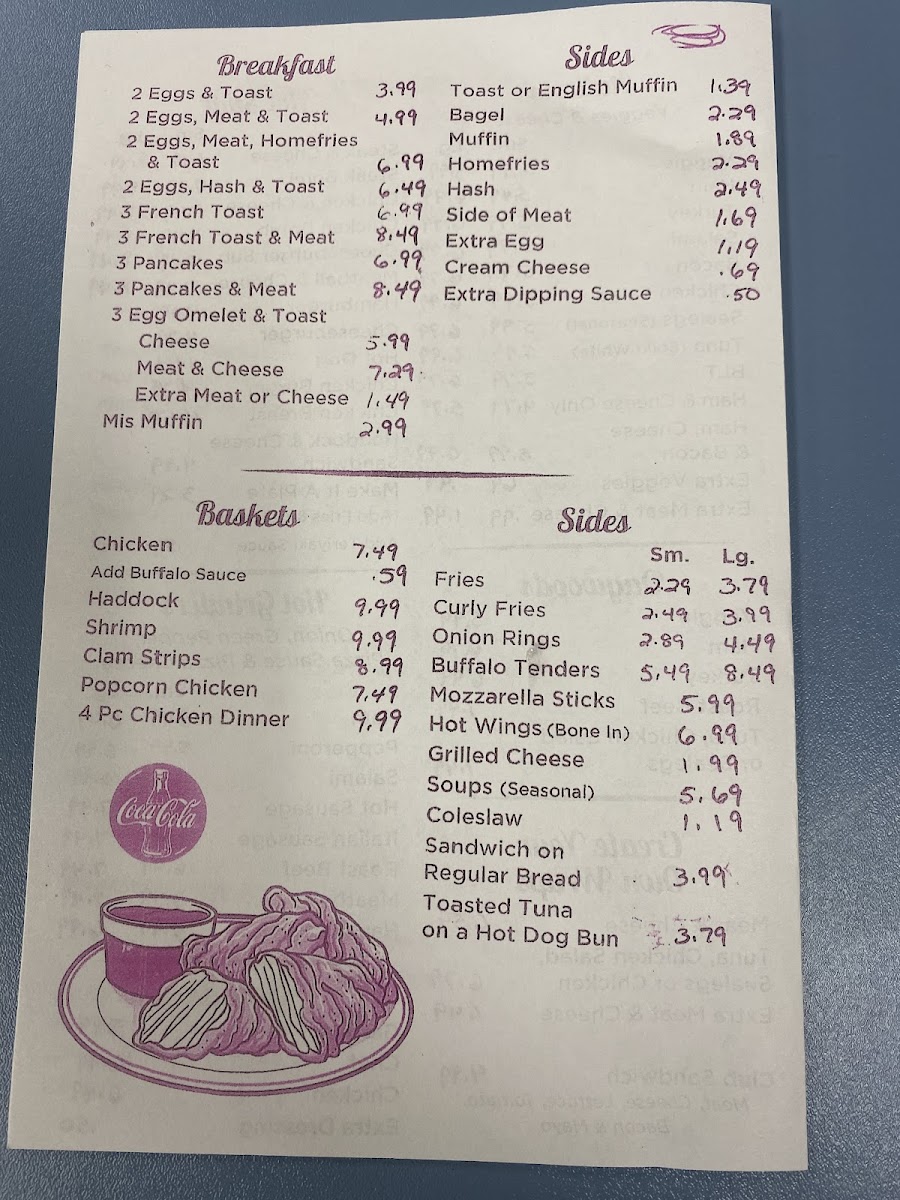 Breakfast
2 Eggs & Toast 3.99
2 Eggs, Meat & Toast 4.99
2 Eggs, Meat, Homefries
& Toast 6.99
2 Eggs, Hash & Toast 6.49
3 French Toast 6.99
3 French Toast & Meat 8.49
3 Pancakes 6.99
3 Pancakes & Meat 8.49
3 Egg Omelet & Toast
Cheese 5.99
Meat & Cheese 7.29
Extra Meat or Cheese 1.49
Mis Muffin 2.99
Sides
Toast or English Muffin 1.39
Bagel 2.29
Muffin 1.89
Homefries 2.29
Hash 2.49
Side of Meat 1.69
Extra Egg 1.19
Cream Cheese .69
Extra Dipping Sauce .50
Baskets
Chicken 7.49
Add Buffalo Sauce .59
Haddock 9.99
Shrimp 9.99
Clam Strips 8.99
Popcorn Chicken 7.49
4 Pc Chicken Dinner 9.99
Coca-Cola
Sides
Sm. Lg.
Fries 2.29 3.79
Curly Fries 2.49 3.99
Onion Rings 2.89 4.49
Buffalo Tenders 5.49 8.49
Mozzarella Sticks 5.99
Hot Wings (Bone In) 6.99
Grilled Cheese 1.99
Soups (Seasonal) 5.69
Coleslaw 1.19
Sandwich on
Regular Bread 3.99
Toasted Tuna
on a Hot Dog Bun 3.79